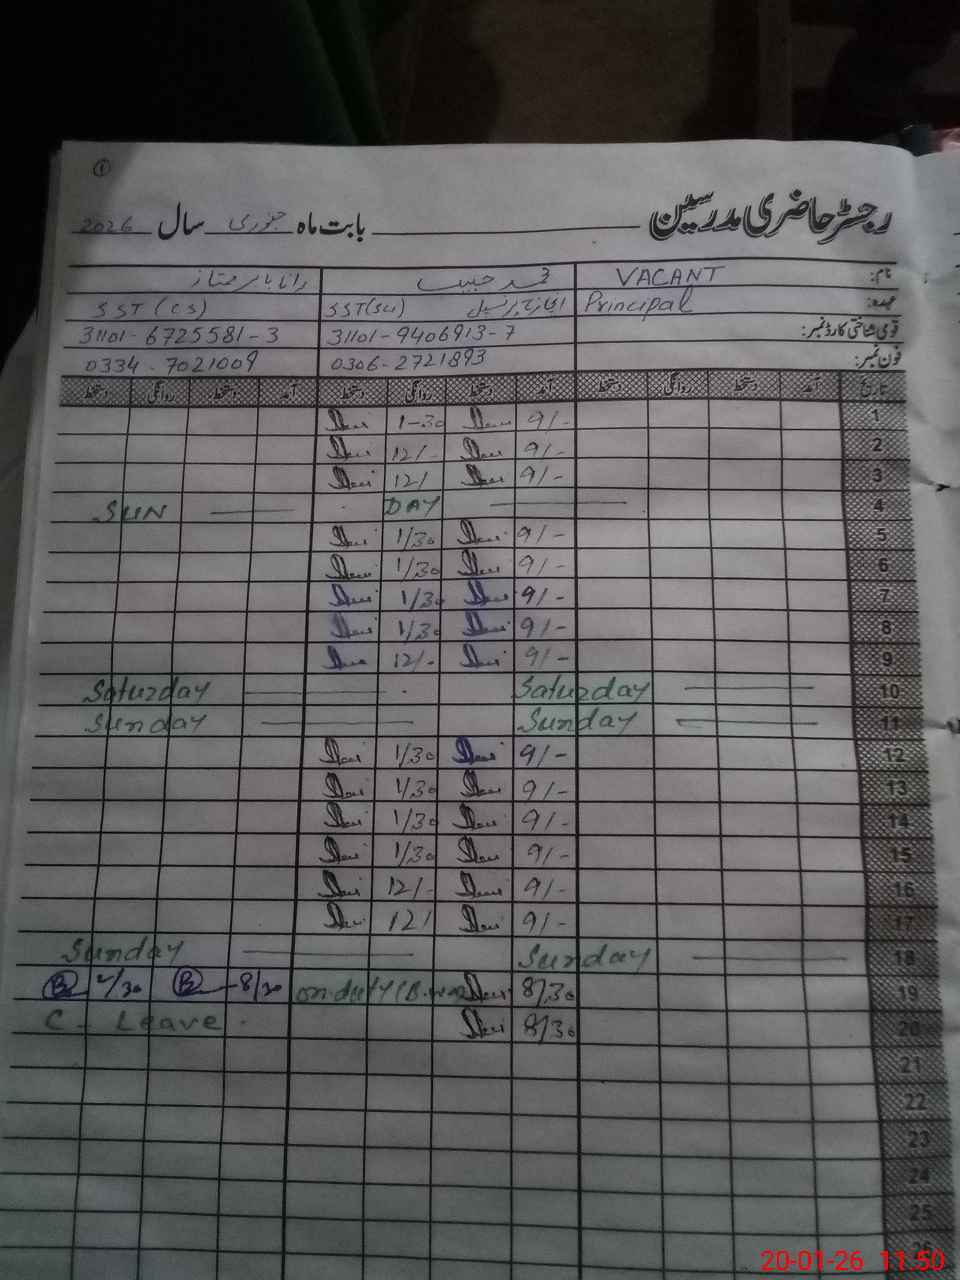 ①
رجسٹر حاضری مدرسین بابت ماہ جنوری سال 2026
نام: VACANT محمد حبیب رانا بابر ممتاز
عہدہ: Principal انچارج پرنسپل SST(Sci) SST (CS)
قومی شناختی کارڈ نمبر: 31101-9406913-7 31101-6725581-3
فون نمبر: 0306-2721893 0334-7021009
تاریخ آمد دستخط روانگی دستخط آمد دستخط روانگی دستخط آمد دستخط روانگی دستخط
1 9/- 1-30
2 9/- 12/-
3 9/- 12/
4 SUN DAY
5 9/- 1/30
6 9/- 1/30
7 9/- 1/30
8 9/- 1/30
9 9/- 12/-
10 Saturday Saturday
11 Sunday Sunday
12 9/- 1/30
13 9/- 1/30
14 9/- 1/30
15 9/- 1/30
16 9/- 12/-
17 9/- 12/
18 Sunday Sunday
19 8/30 on duty 8/30 2/30
20 8/30 C. Leave
21
22
23
24
25
26
20-01-26 11:50